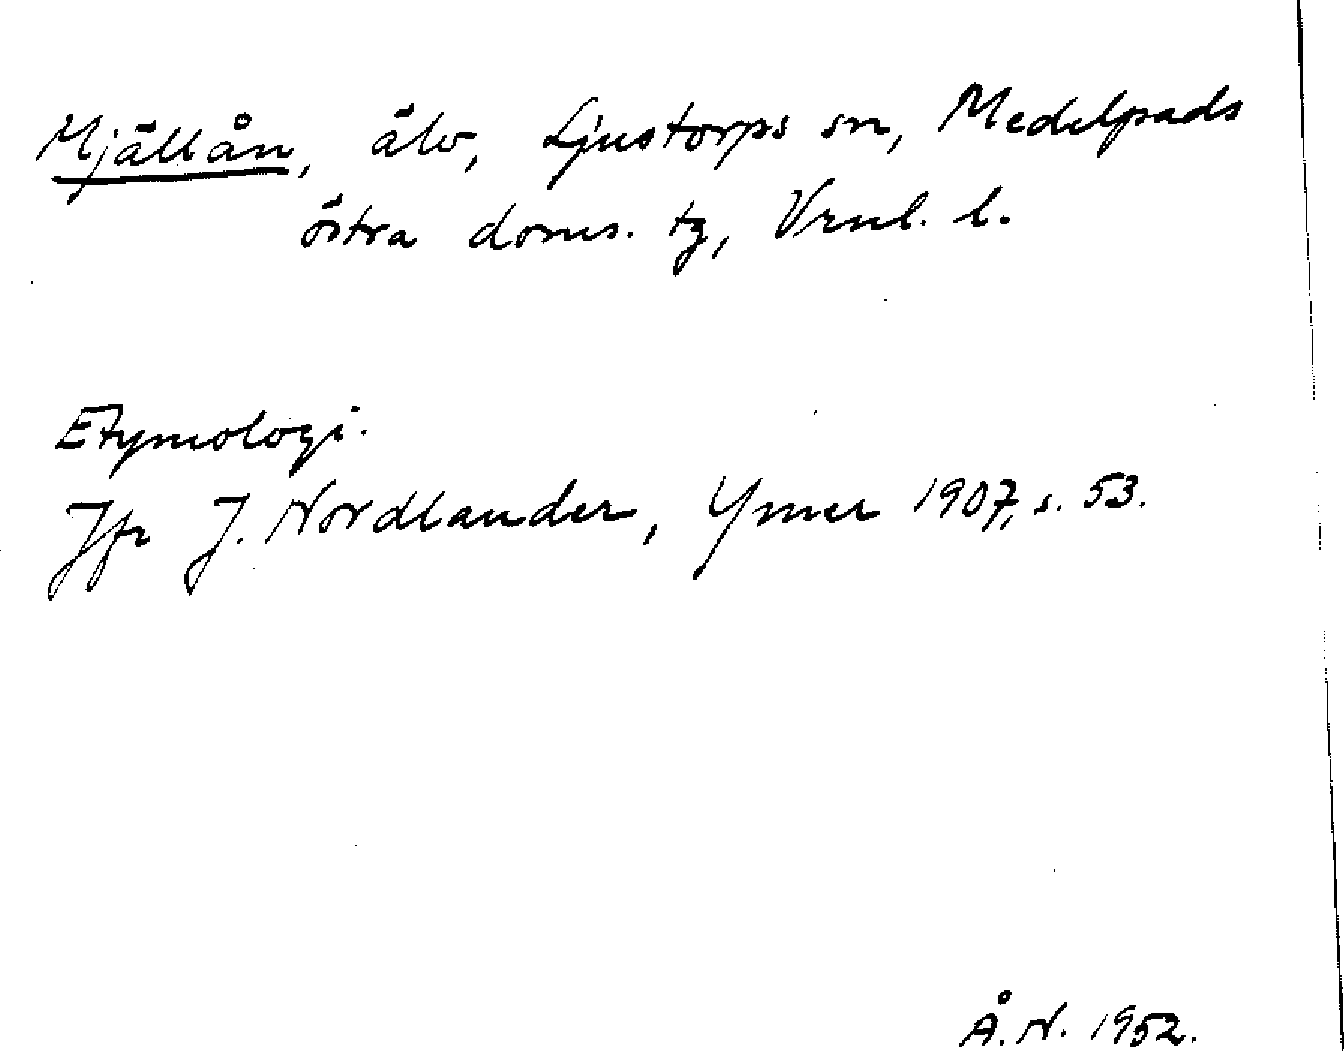 Mjällån, älv, Ljustorps sn, Medelpads
östra doms. tg, Vrnl. l.
Etymologi.
Jfr J. Nordlander, Ymer 1907, s. 53.
Å. N. 1952.